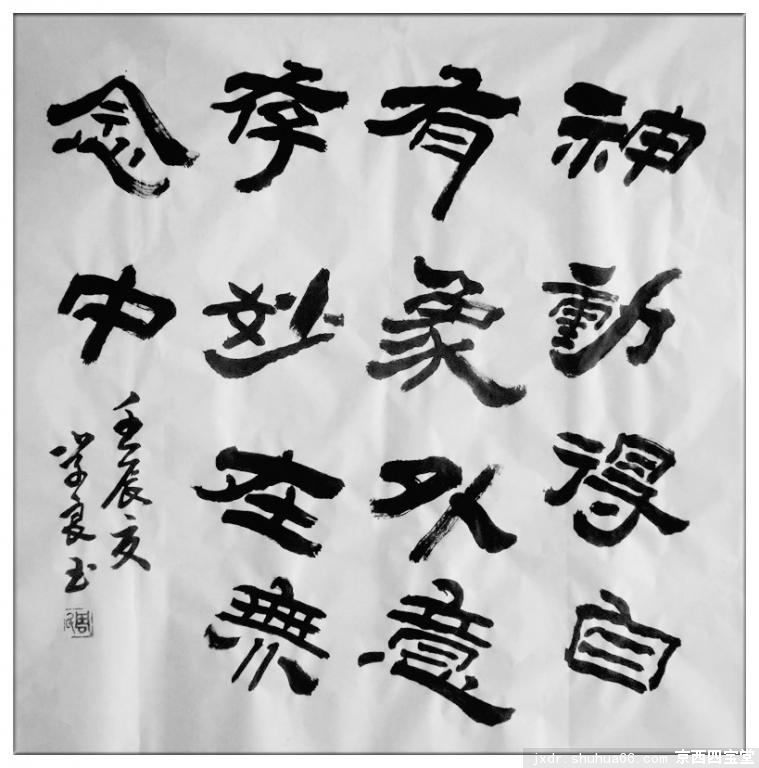 神動得自
有象外意
存妙在無
念中
壬辰夏
学良书
jxdr.shuhua66.com 京西四宝堂